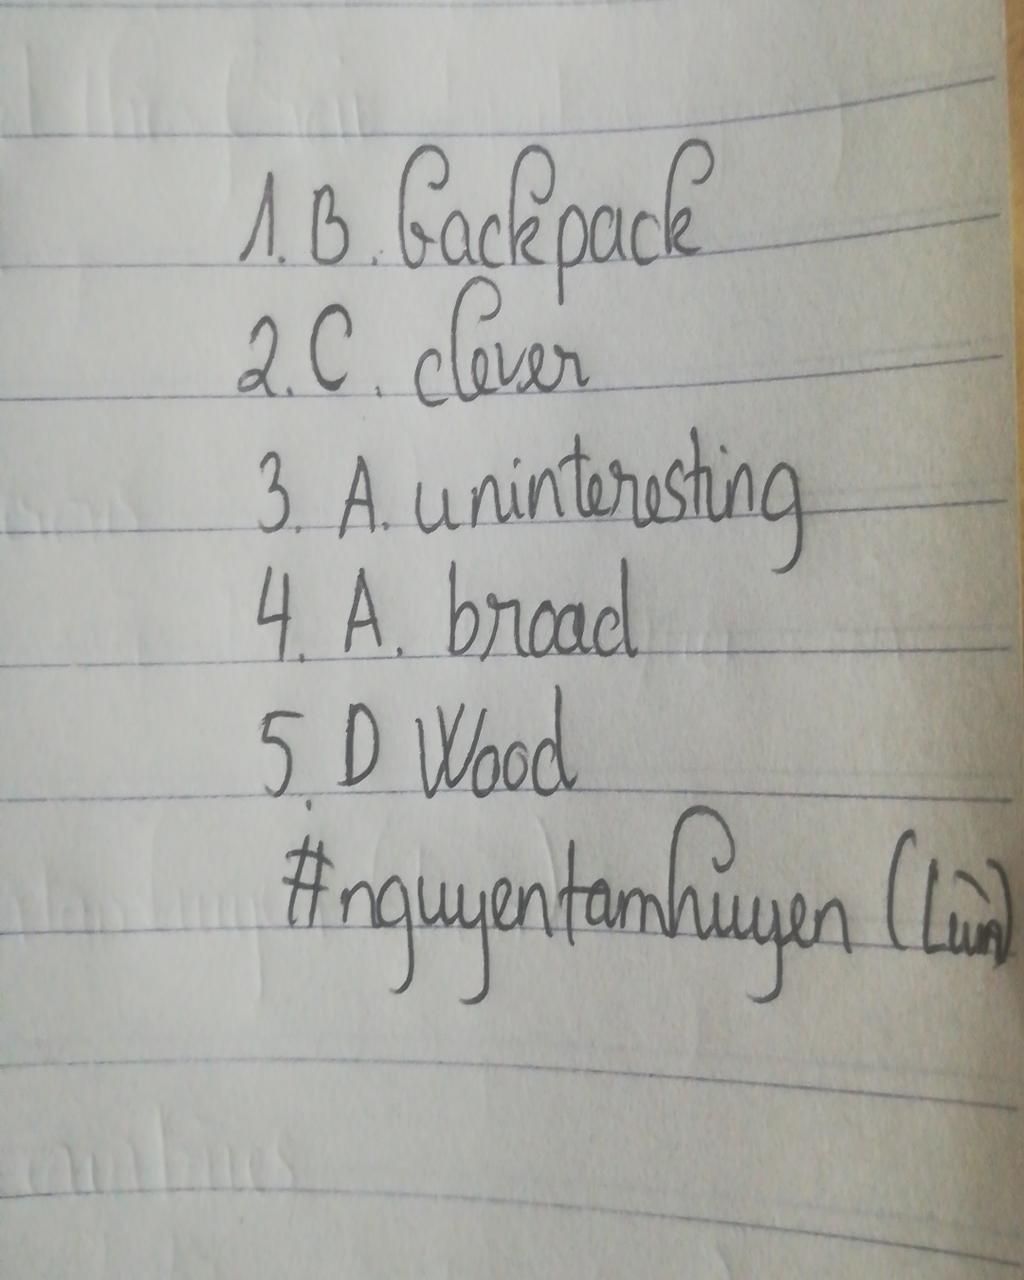 1. B. backpack
2. C. clever
3. A. uninteresting
4. A. broad
5. D Wood
#nguyentamhuyen (Lùn)